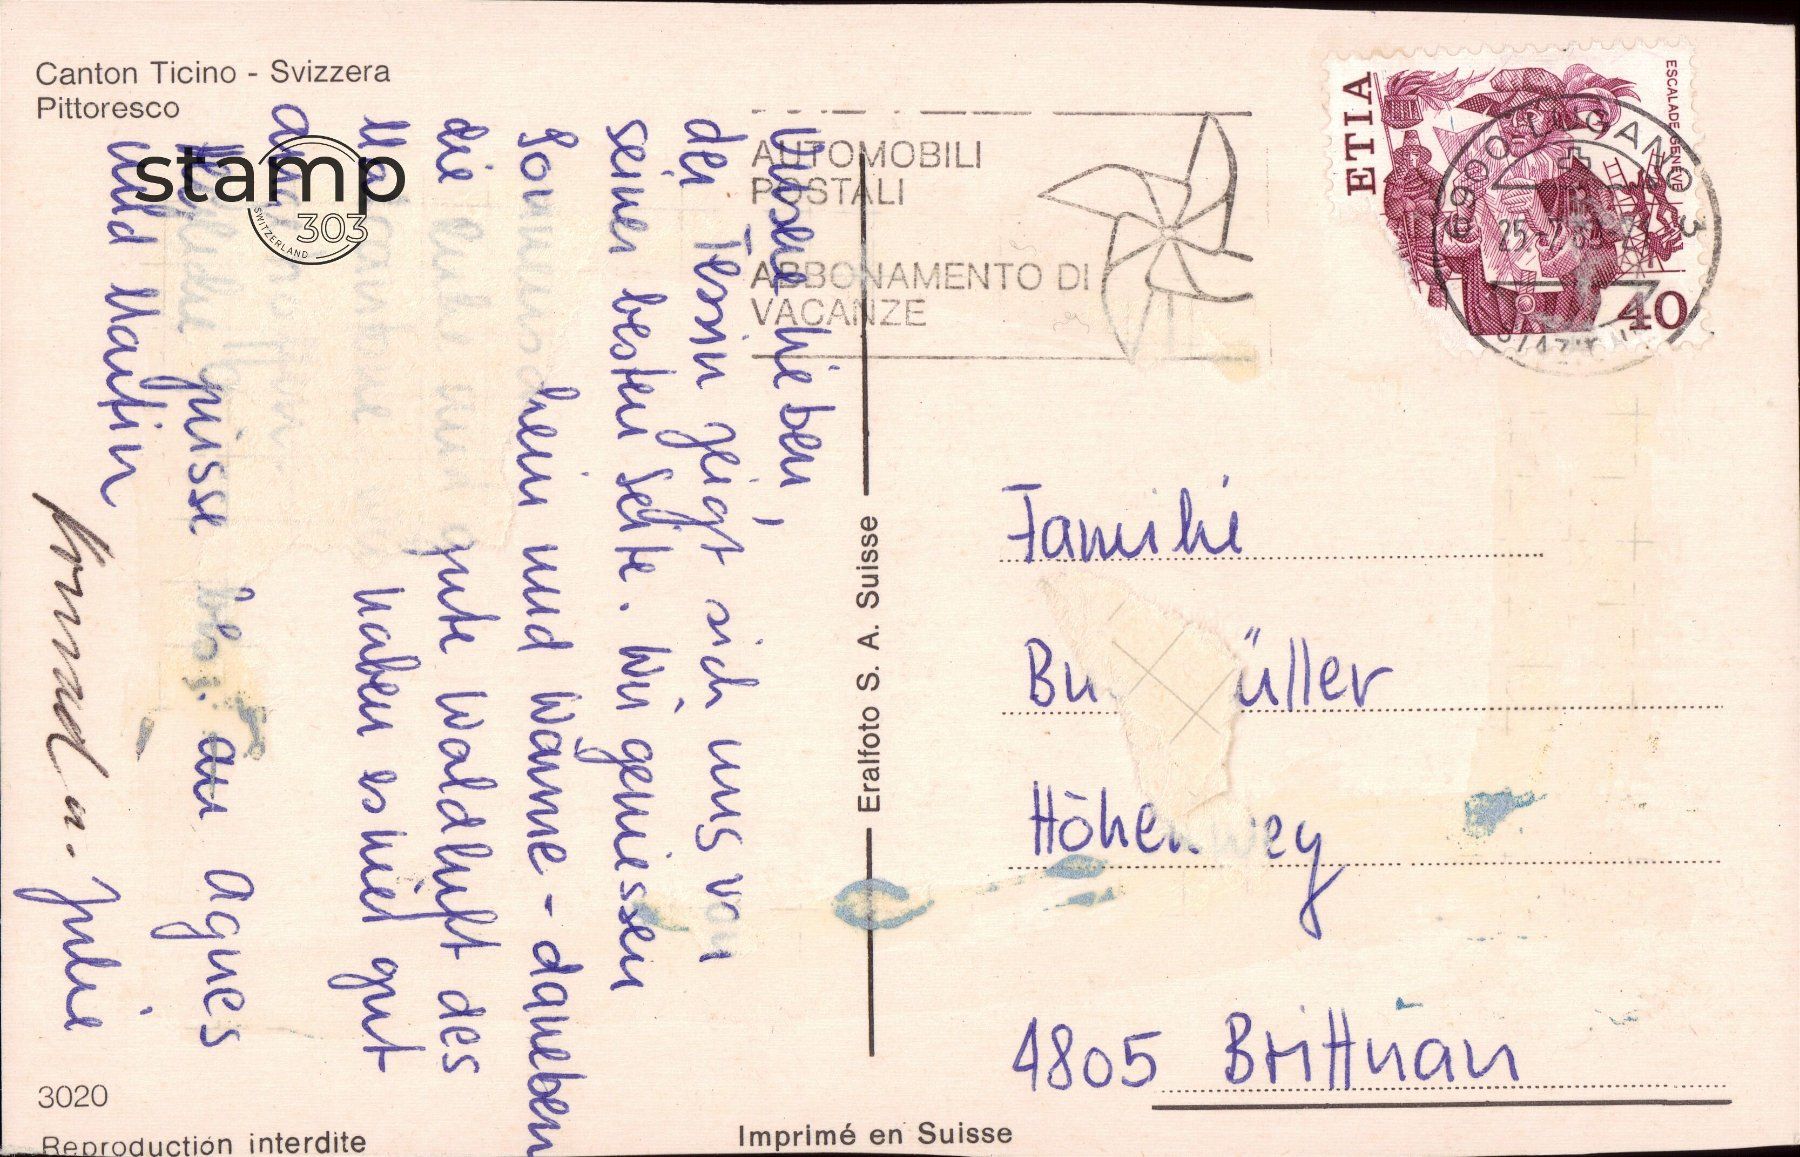 Canton Ticino - Svizzera
Pittoresco
stamp
303
SWITZERLAND
AUTOMOBILI
POSTALI
ABBONAMENTO DI
VACANZE
ETIA
ESCALADE GENÈVE
40
6900 LUGANO 3
25-7
Unsere Lieben,
der Tessin zeigt sich uns von
seiner besten Seite. Wir geniessen
Sonnenschein und Wärme - daneben
die gute Waldluft des
haben es hier gut
grüsse an Agnes
und Martin
Konrad u. Julie
Eralfoto S. A. Suisse
Familie
Bu üller
Höhenweg
4805 Brittnau
3020
Reproduction interdite
Imprimé en Suisse